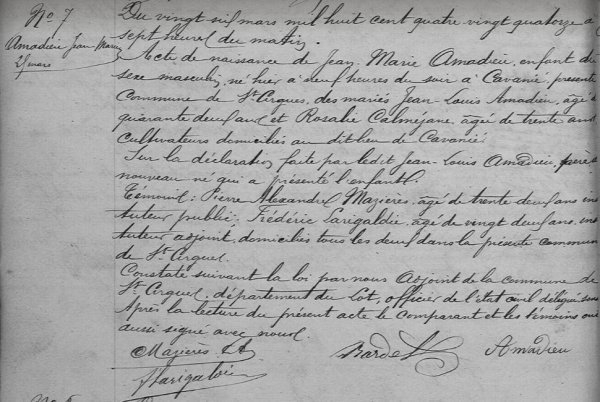 No 7
Amadieu Jean Marie
25 mars
Du vingt six mars mil huit cent quatre vingt quatorze a
sept heures du matin.
Acte de naissance de Jean Marie Amadieu, enfant du
sexe masculin, né hier à neuf heures du soir à Cavanié, présente
Commune de St Cirgues, des mariés Jean Louis Amadieu, âgé
quarante deux ans et Rosalie Calmejane, âgée de trente ans
cultivateurs domiciliés au dit lieu de Cavanié.
Sur la déclaration faite par ledit Jean-Louis Amadieu, père
nouveau né qui a présenté l'enfant.
Témoins: Pierre Alexandre Mazières, âgé de trente deux ans, ins
tuteur public; Frédéric Larigaldie, âgé de vingt deux ans, ins
tuteur adjoint, domiciliés tous les deux dans la présente commune
de St Cirgues.
Constaté suivant la loi par nous Adjoint de la commune de
St Cirgues, département du Lot, officier de l'état civil délégué
Après la lecture du présent acte le comparant et les témoins ont
aussi signé avec nous.
Mazières Bardet Amadieu
Larigaldie